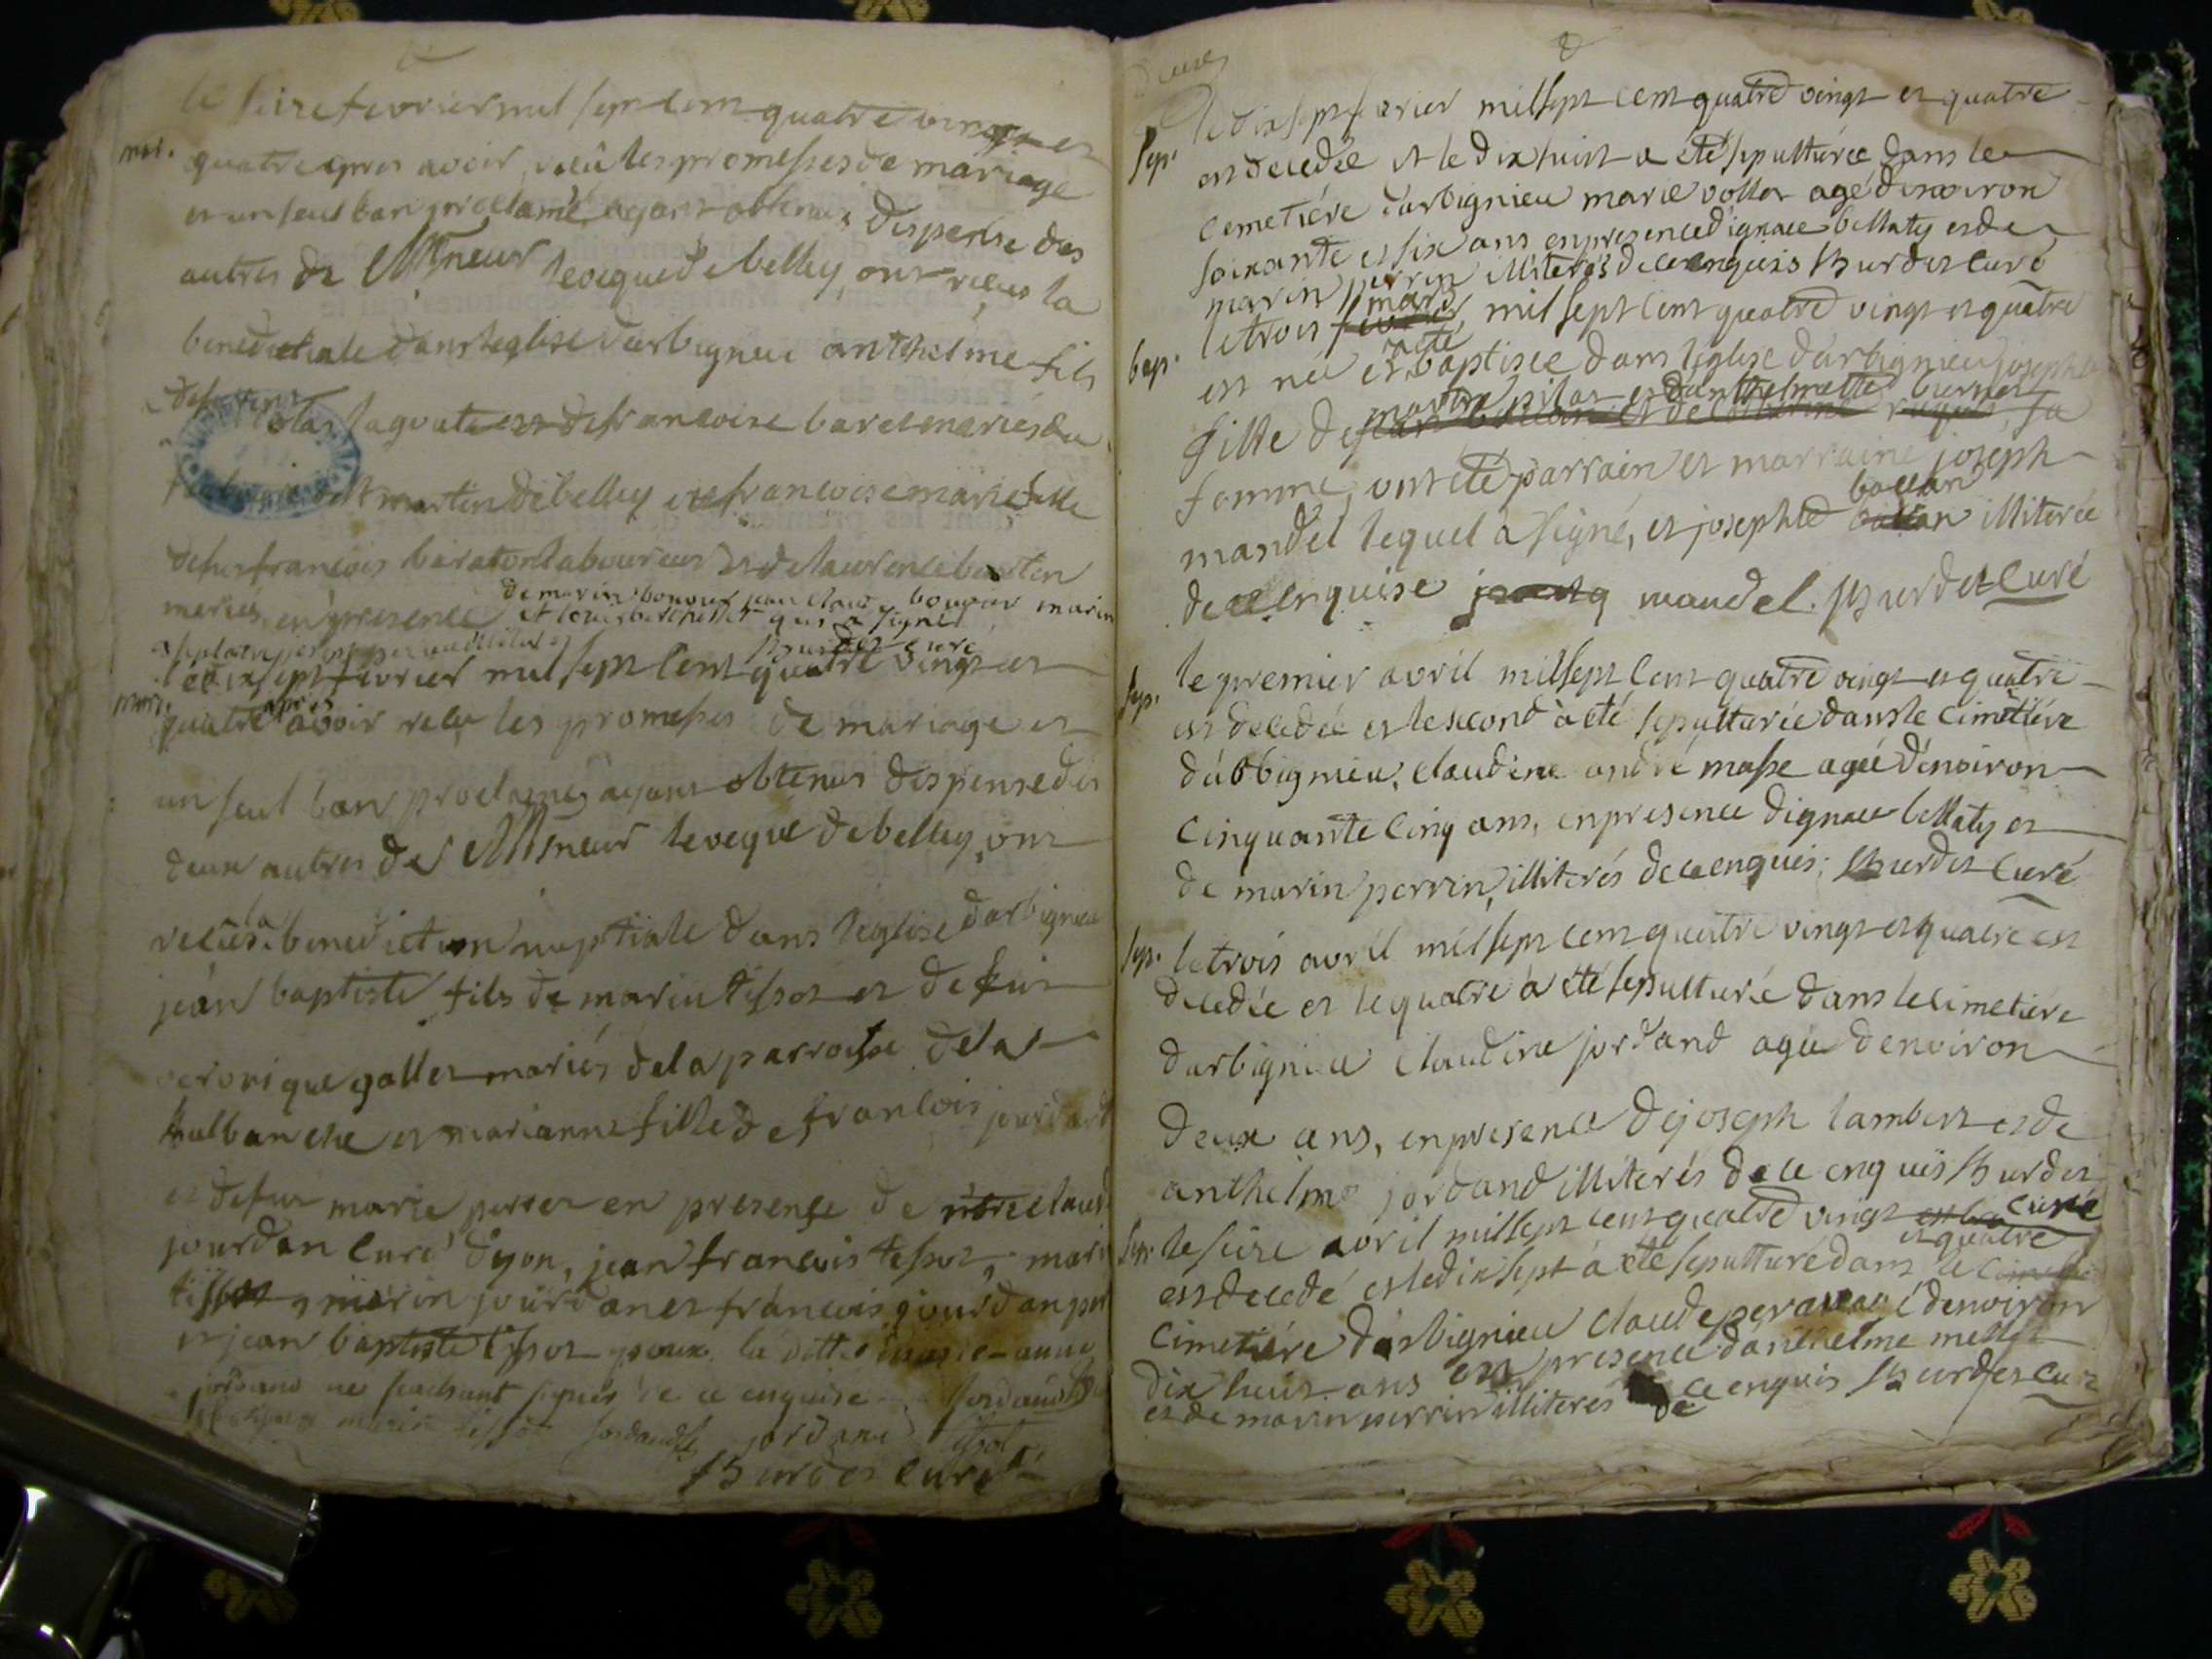 le seize fevrier mil sept cent quatre vingt et
mar.
quatre apres avoir recû les promesses de mariage
et un seul ban proclamé ayant obtenus dispense des
autres de Mgneur leveque de belley, ont recus la
dans leglise darbignieu anthelme fils
lagoute et de francoise baret mariés de
st martin de belley et francoise marie fille
de feu francois baraton laboureur et de laurence
mariés en presence de marin bouvier jean claude bouvier marin
et louis qui a signé
burdet curé
le dix sept fevrier mil sept cent quatre vingt et
mar.
quatre apres avoir reçu les promesses de mariage et
un seul ban proclamé ayant obtenus dispense des
deux autres de Mgneur leveque de belley, ont
recûs la benediction nuptiale dans leglise darbignieu
jean baptiste fils de marin tissot et de feue
veronique gallet mariés de la parroisse de
et marianne fille de francois jourdan
et de feue marie perret en presence de claude
jourdan curé dyon, jean francois tissot, marin
tissot, marin jourdan et francois jourdan pere
et jean baptiste tissot epoux la ditte marie-anne
jordand ne sachant signer de ce enquise jordand
marin tissot jordand jordand tissot
burdet curé
8
Sep.
le dix sept fevrier mil sept cent quatre vingt et quatre
est decedée et le dix huit a été sepulturée dans le
cemetiére darbignieu marie vollet agé denviron
soixante et six ans en presence dignace bellaty et de
marin perrin illiterés de ce enquis burdet curé
bap.
le trois fevrier mars mil sept cent quatre vingt et quatre
est née et a été baptisée dans leglise darbignieu josephte
fille de marin pilat et danthelmette sa
femme, ont été parrain et marraine joseph
mandel lequel a signé, et josephte ballan illiterée
de ce enquise mandel. burdet curé
Sep.
le premier avril mil sept cent quatre vingt et quatre
est decedée et le second à eté sepulturée dans le cimetiére
darbignieu, claudine andré masse agée dénviron
cinquante cinq ans, en presence dignace bellaty et
de marin perrin, illiterés de ce enquis: burdet curé
Sep.
le trois avril mil sept cent quatre vingt et quatre est
decedée et le quatre à été sepulturée dans le cimetiére
darbignieu claudine jordand agée denviron
deux ans, en presence de joseph lambert et de
anthelme jordand illiterés de ce enquis burdet
curé
Sep.
le seize avril mil sept cent quatre vingt et quatre
est decedé et le dix sept à eté sepulturé dans le
cimetiére darbignieu claude agé denviron
dix huit ans en presence danthelme mellet
et de marin perrin illiterés de ce enquis burdet curé